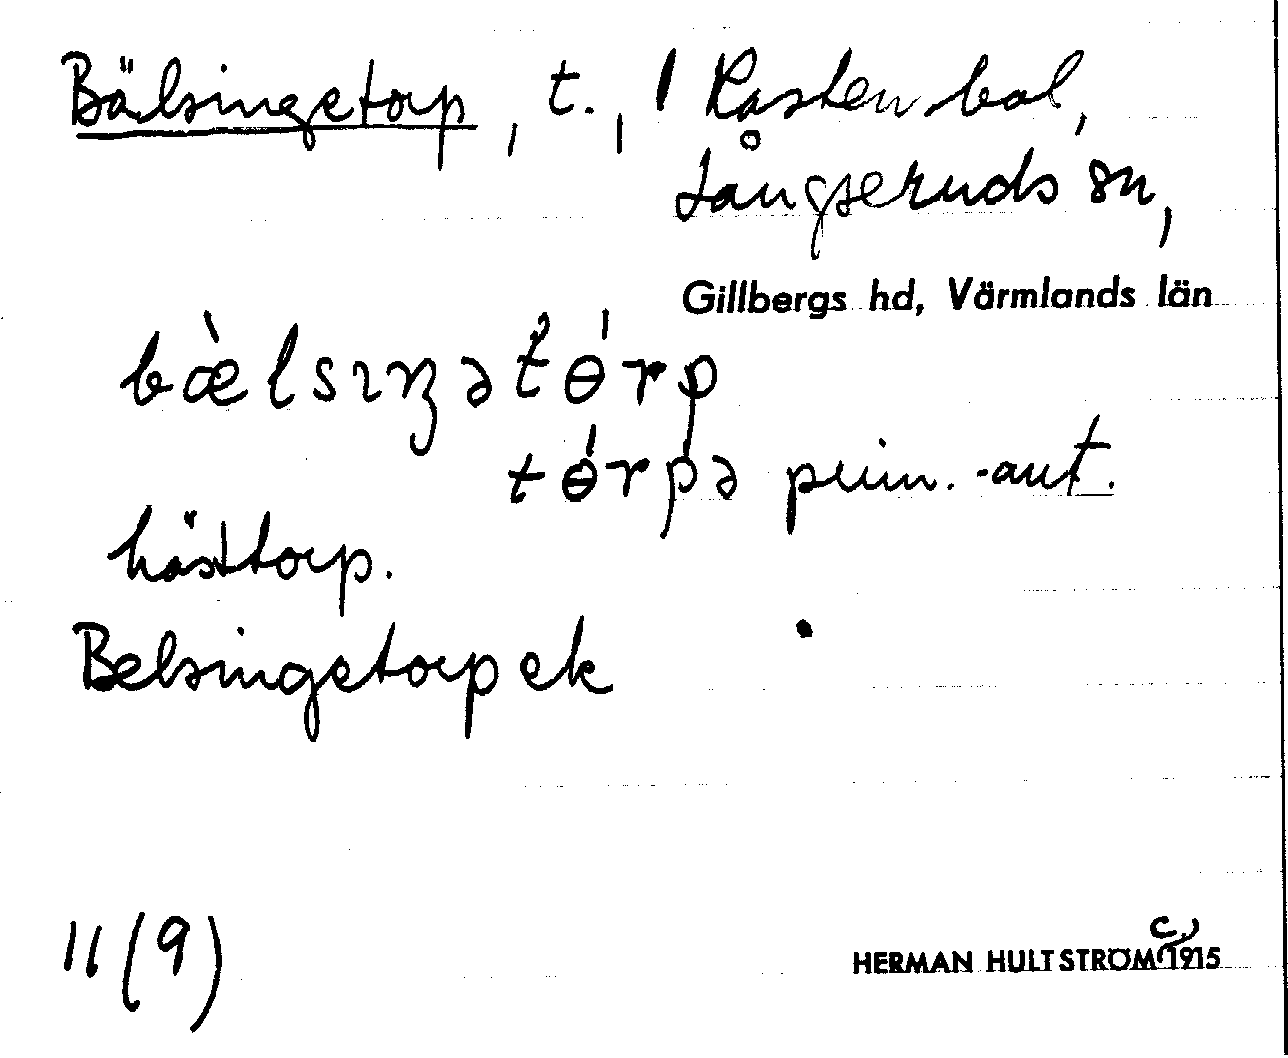 Bälsingetorp, t., / Rastensbol,
Långseruds sn,
Gillbergs hd, Värmlands län
bæ̀lsɪŋətɵ́rp
tɵ́rpə prim. -aut.
hästtorp.
Belsingetorp ek
11 (9)
HERMAN HULTSTRÖM c. 1915